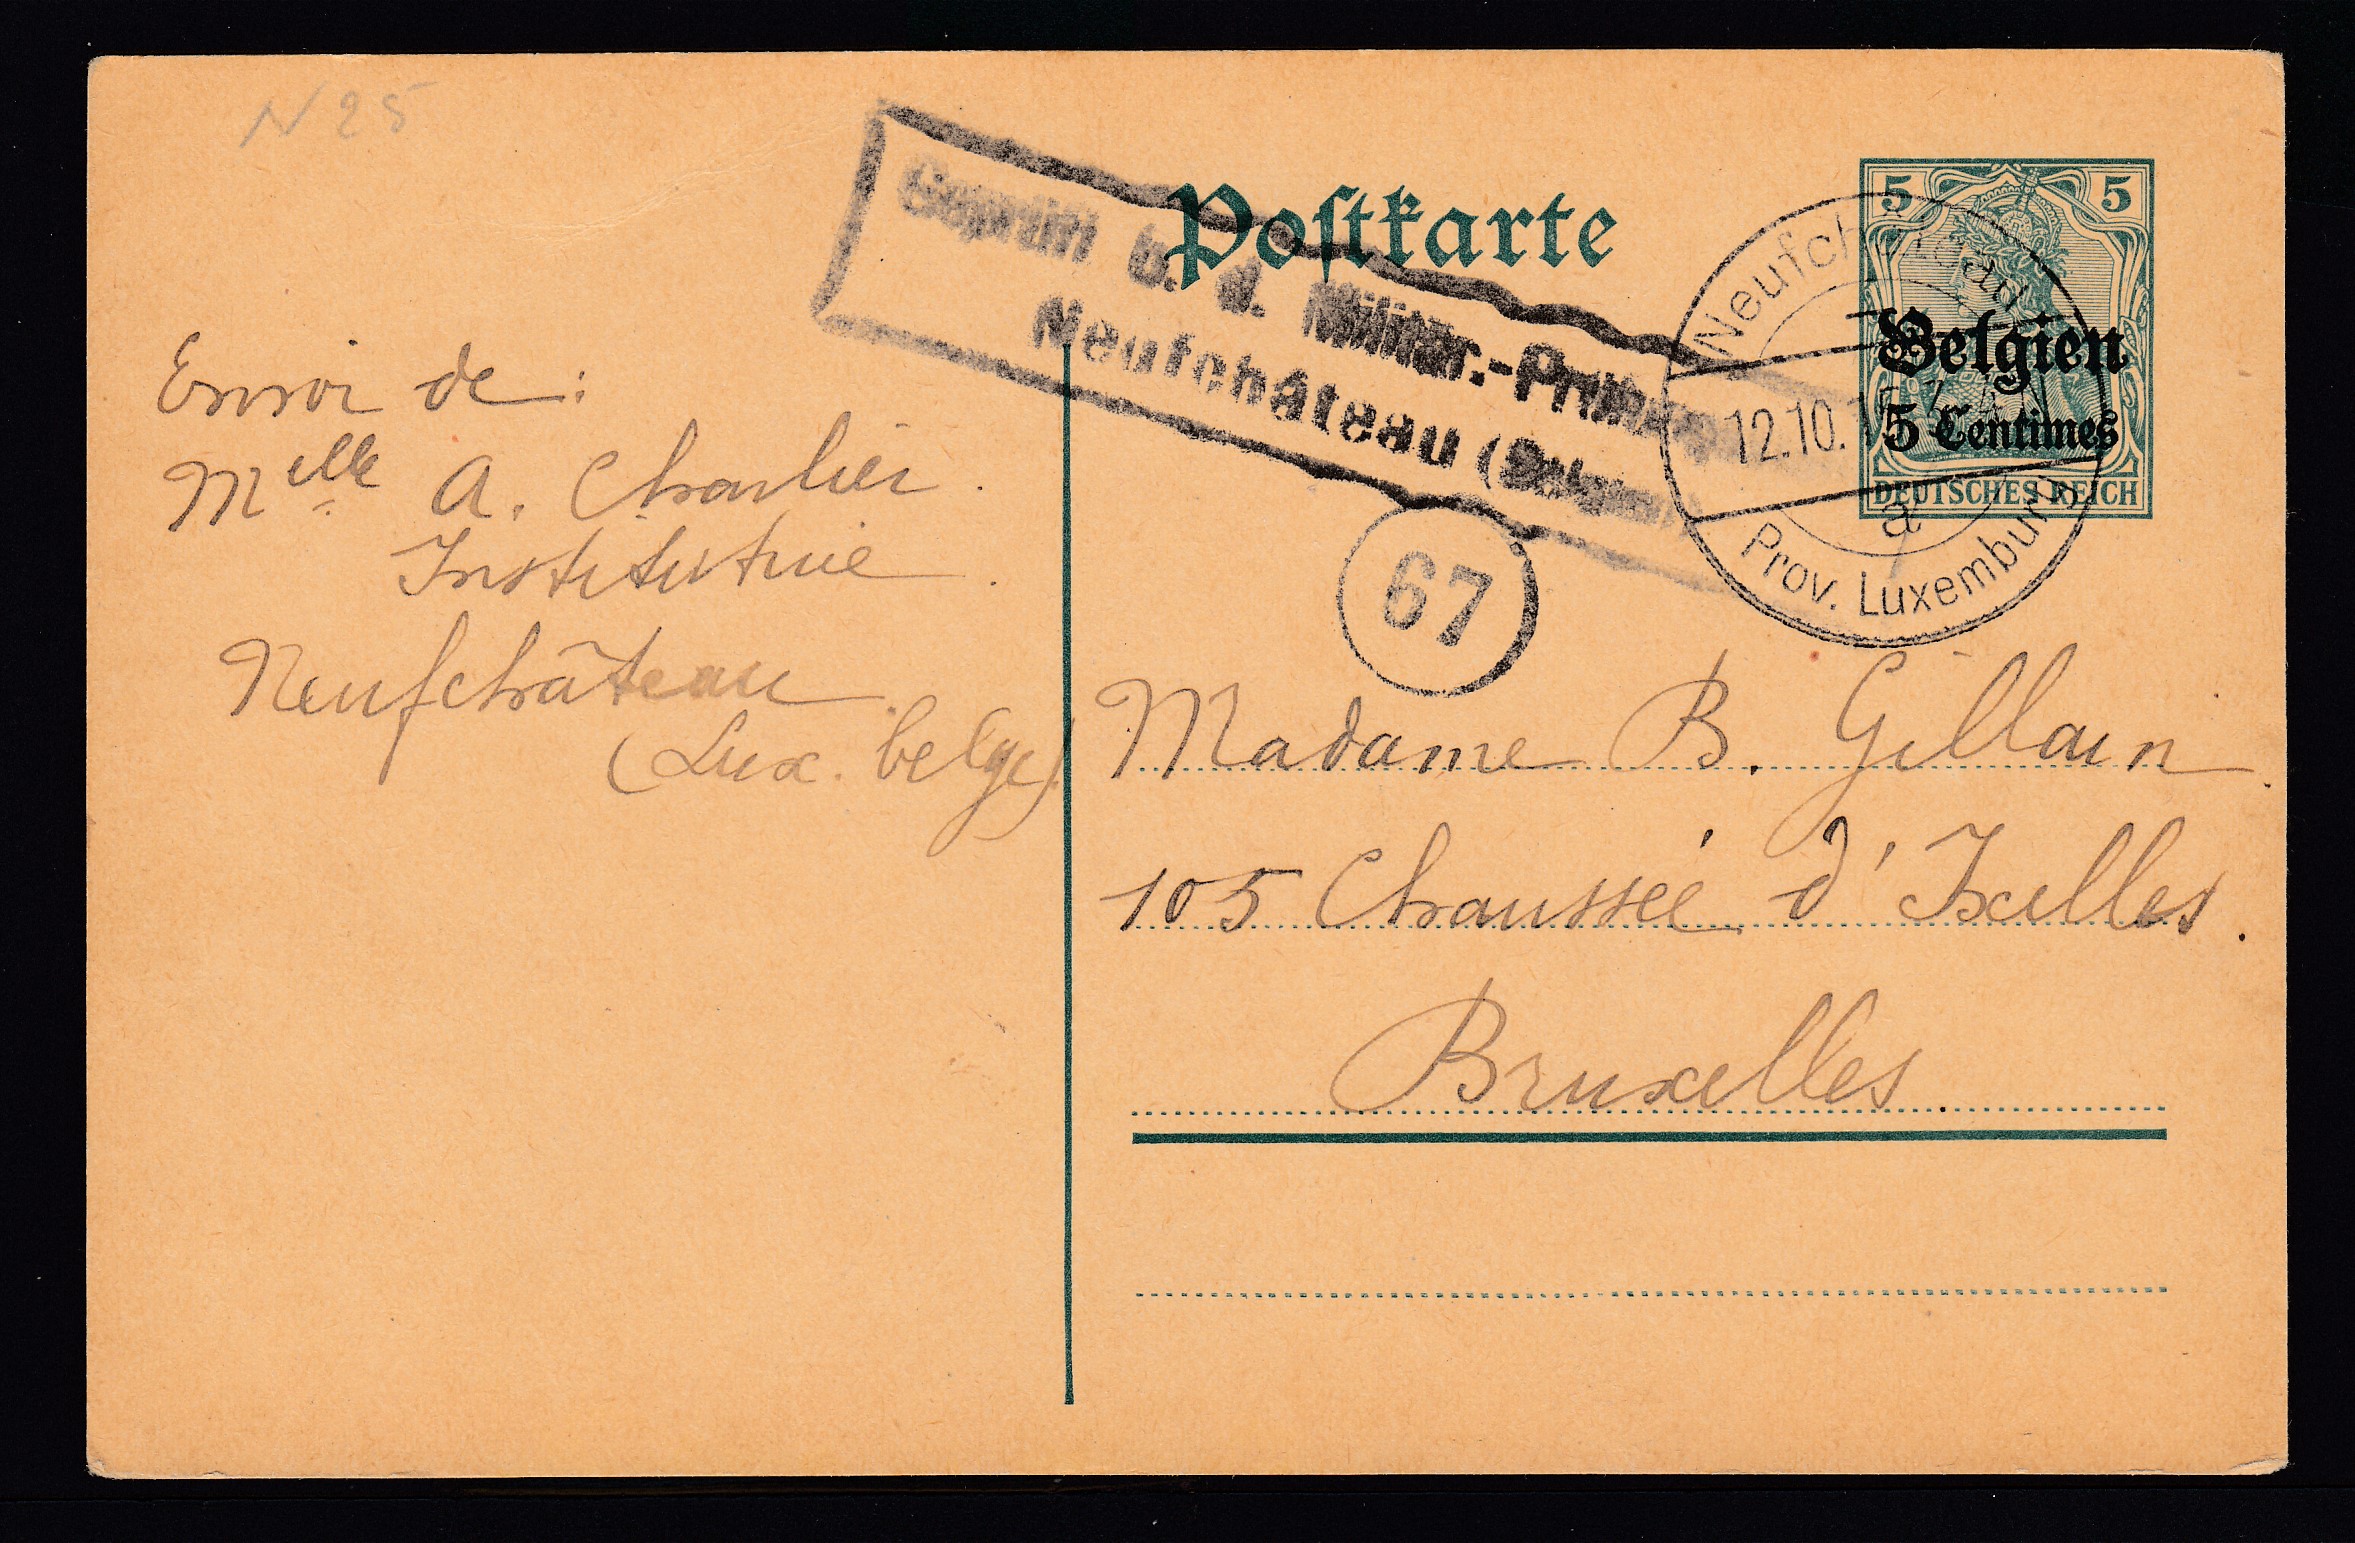 N 25
Postkarte
5 5
Belgien
5 Centimes
DEUTSCHES REICH
Neufchâteau
12.10.
a
Prov. Luxemburg
Geprüft d. Militär.-
Neufchâteau (
67
Envoi de :
Melle A. Charlier.
Institutrice.
Neufchâteau.
(Lux. belge)
Madame B. Gillain.
105 Chaussée d'Ixelles.
Bruxelles.